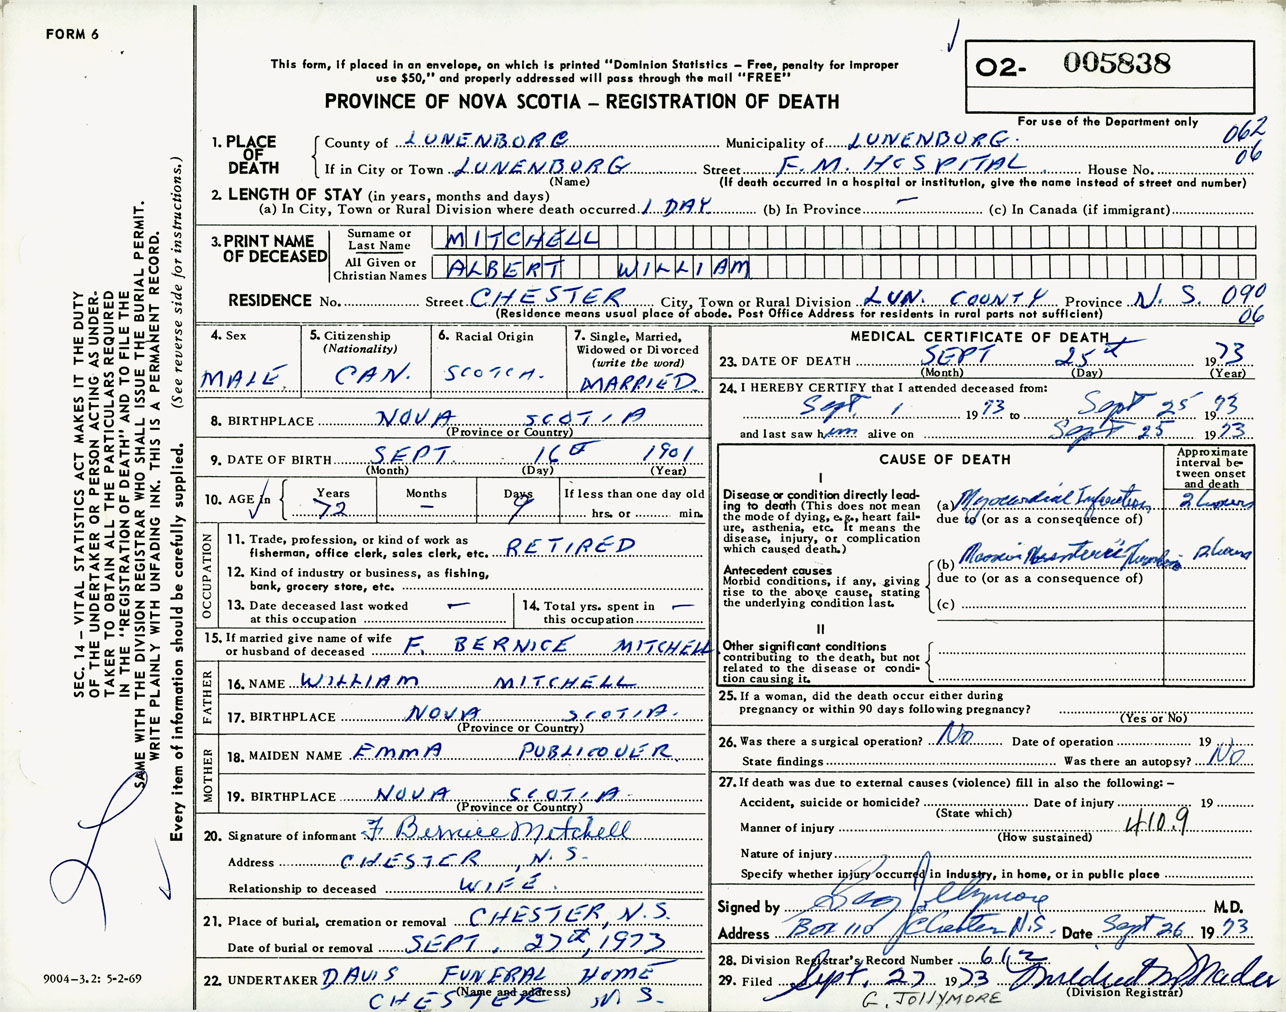 FORM 6
This form, if placed in an envelope, on which is printed "Dominion Statistics – Free, penalty for improper
use $50," and properly addressed will pass through the mail "FREE"
PROVINCE OF NOVA SCOTIA – REGISTRATION OF DEATH
O2- 005838
For use of the Department only
062
06
1. PLACE OF DEATH
County of LUNENBORG Municipality of LUNENBORG.
If in City or Town LUNENBORG Street F. M. HOSPITAL House No.
(Name) (If death occurred in a hospital or institution, give the name instead of street and number)
2. LENGTH OF STAY (in years, months and days)
(a) In City, Town or Rural Division where death occurred 1 DAY (b) In Province – (c) In Canada (if immigrant)
3. PRINT NAME OF DECEASED
Surname or Last Name MITCHELL
All Given or Christian Names ALBERT WILLIAM
RESIDENCE No. Street CHESTER City, Town or Rural Division LUN. COUNTY Province N. S. 090
(Residence means usual place of abode. Post Office Address for residents in rural parts not sufficient) 06
4. Sex
MALE.
5. Citizenship
(Nationality)
CAN.
6. Racial Origin
SCOTCH.
7. Single, Married,
Widowed or Divorced
(write the word)
MARRIED.
8. BIRTHPLACE NOVA SCOTIA
(Province or Country)
9. DATE OF BIRTH SEPT. 16th 1901
(Month) (Day) (Year)
10. AGE in Years Months Days If less than one day old
72 – 9 hrs. or min.
OCCUPATION
11. Trade, profession, or kind of work as
fisherman, office clerk, sales clerk, etc. RETIRED
12. Kind of industry or business, as fishing,
bank, grocery store, etc.
13. Date deceased last worked
at this occupation –
14. Total yrs. spent in
this occupation –
15. If married give name of wife
or husband of deceased F. BERNICE MITCHELL
FATHER
16. NAME WILLIAM MITCHELL
17. BIRTHPLACE NOVA SCOTIA.
(Province or Country)
MOTHER
18. MAIDEN NAME EMMA PUBLICOVER.
19. BIRTHPLACE NOVA SCOTIA.
(Province or Country)
20. Signature of informant F Bernice Mitchell
Address CHESTER, N. S.
Relationship to deceased WIFE.
21. Place of burial, cremation or removal CHESTER, N.S.
Date of burial or removal SEPT. 27th, 1973
22. UNDERTAKER DAVIS FUNERAL HOME
(Name and address)
CHESTER N. S.
MEDICAL CERTIFICATE OF DEATH
23. DATE OF DEATH SEPT 25th 1973
(Month) (Day) (Year)
24. I HEREBY CERTIFY that I attended deceased from:
Sept. 1 1973 to Sept 25 1973
and last saw him alive on Sept 25 1973
CAUSE OF DEATH
Approximate
interval be-
tween onset
and death
I
Disease or condition directly lead-
ing to death (This does not
mean the mode of dying, e.g., heart fail-
ure, asthenia, etc. It means the
disease, injury, or complication
which caused death.)
(a) Myocardial Infarction 2 hours
due to (or as a consequence of)
Antecedent causes
Morbid conditions, if any, giving
rise to the above cause, stating
the underlying condition last.
(b) Massive Mesenteric 12 hours
due to (or as a consequence of)
(c)
II
Other significant conditions
contributing to the death, but not
related to the disease or condi-
tion causing it.
25. If a woman, did the death occur either during
pregnancy or within 90 days following pregnancy?
(Yes or No)
26. Was there a surgical operation? No Date of operation 19
State findings Was there an autopsy? No
27. If death was due to external causes (violence) fill in also the following: –
Accident, suicide or homicide? Date of injury 19
(State which)
Manner of injury 410.9
(How sustained)
Nature of injury
Specify whether injury occurred in industry, in home, or in public place
Signed by Jollymore M.D.
Address Box 110 Chester N.S. Date Sept 26 1973
28. Division Registrar's Record Number 612
29. Filed Sept. 27 1973 Mildred M Nader
(Division Registrar)
G. JOLLYMORE
SEC. 14 – VITAL STATISTICS ACT MAKES IT THE DUTY
OF THE UNDERTAKER OR PERSON ACTING AS UNDER-
TAKER TO OBTAIN ALL THE PARTICULARS REQUIRED
IN THE "REGISTRATION OF DEATH" AND TO FILE THE
SAME WITH THE DIVISION REGISTRAR WHO SHALL ISSUE THE BURIAL PERMIT.
WRITE PLAINLY WITH UNFADING INK. THIS IS A PERMANENT RECORD.
Every item of information should be carefully supplied. (See reverse side for instructions.)
9004-3.2: 5-2-69